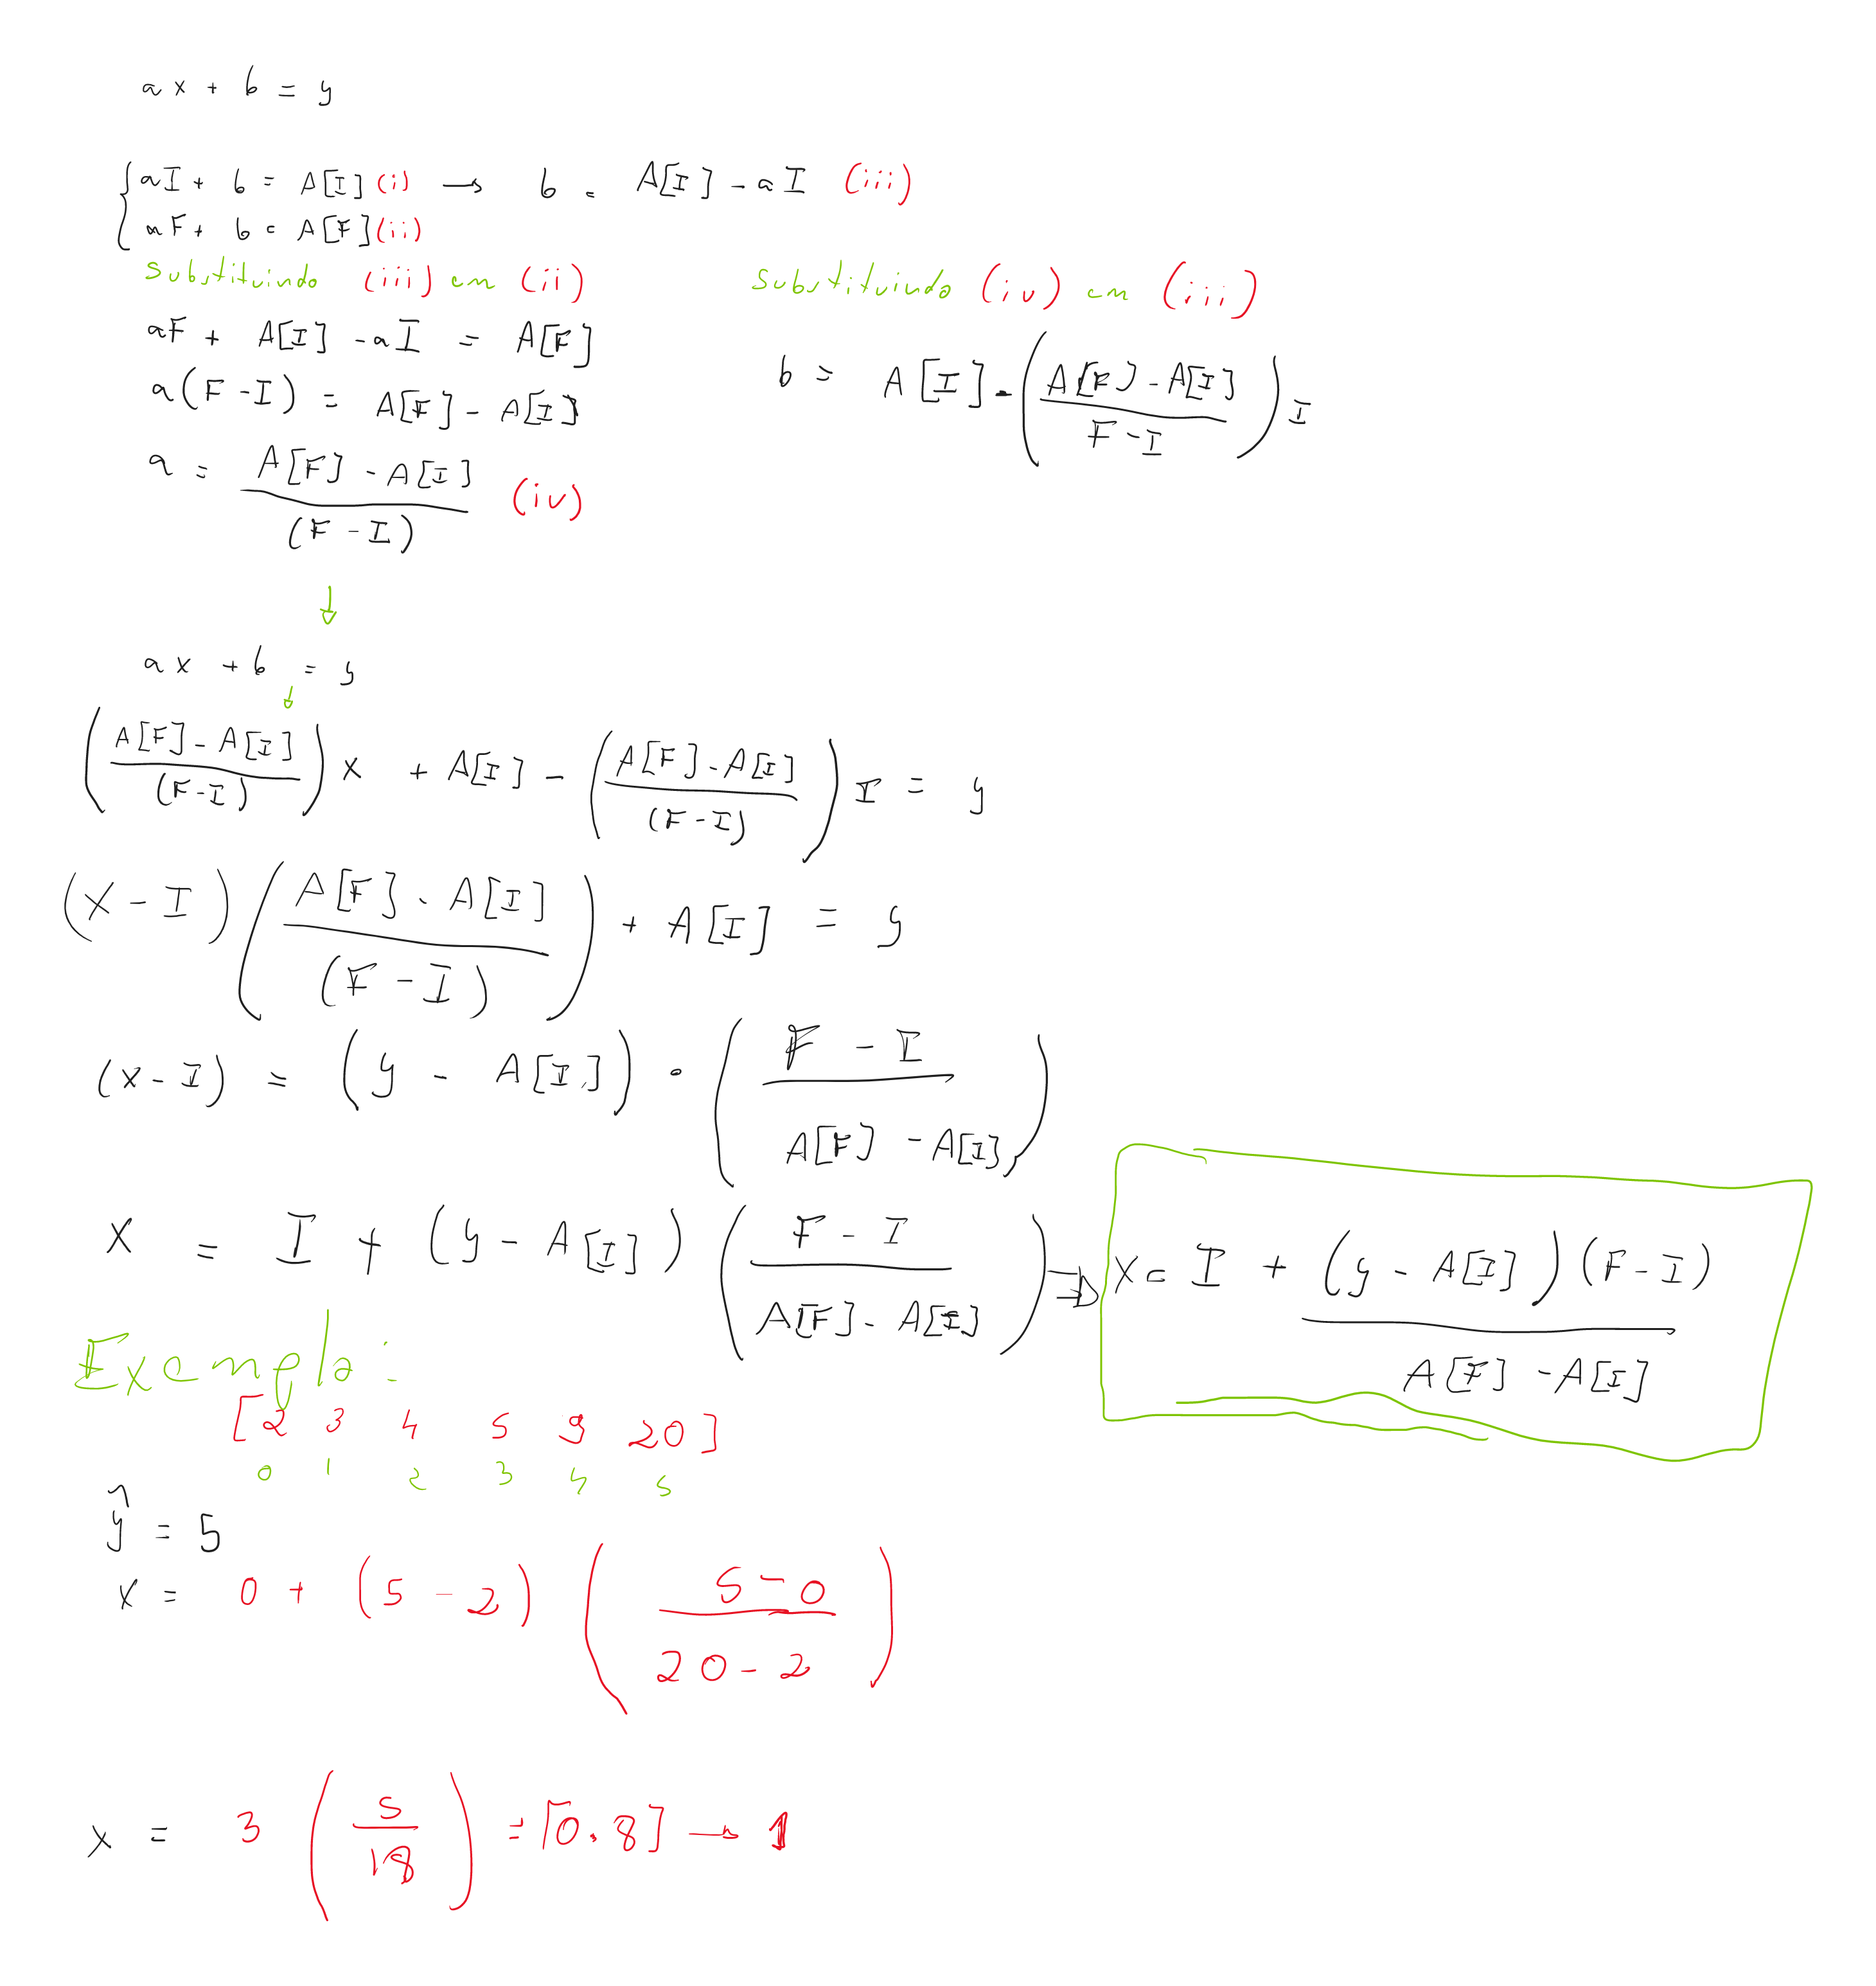 ax + b = y
aI + b = A[I] (i) → b = A[I] - aI (iii)
aF + b = A[F] (ii)
Substituindo (iii) em (ii)
aF + A[I] - aI = A[F]
a(F - I) = A[F] - A[I]
a = (A[F] - A[I]) / (F - I) (iv)
Substituindo (iv) em (iii)
b = A[I] - ((A[F] - A[I]) / (F - I)) I
↓
ax + b = y
↓
((A[F] - A[I]) / (F - I)) x + A[I] - ((A[F] - A[I]) / (F - I)) I = y
(x - I) ((A[F] - A[I]) / (F - I)) + A[I] = y
(x - I) = (y - A[I]) · ((F - I) / (A[F] - A[I]))
x = I + (y - A[I]) ((F - I) / (A[F] - A[I])) ⇒ x = I + (y - A[I])(F - I) / (A[F] - A[I])
Exemplo:
[2 3 4 5 9 20]
0 1 2 3 4 5
ŷ = 5
x = 0 + (5 - 2) ((5 - 0) / (20 - 2))
x = 3 (5 / 18) = ⌈0.8⌉ → 1